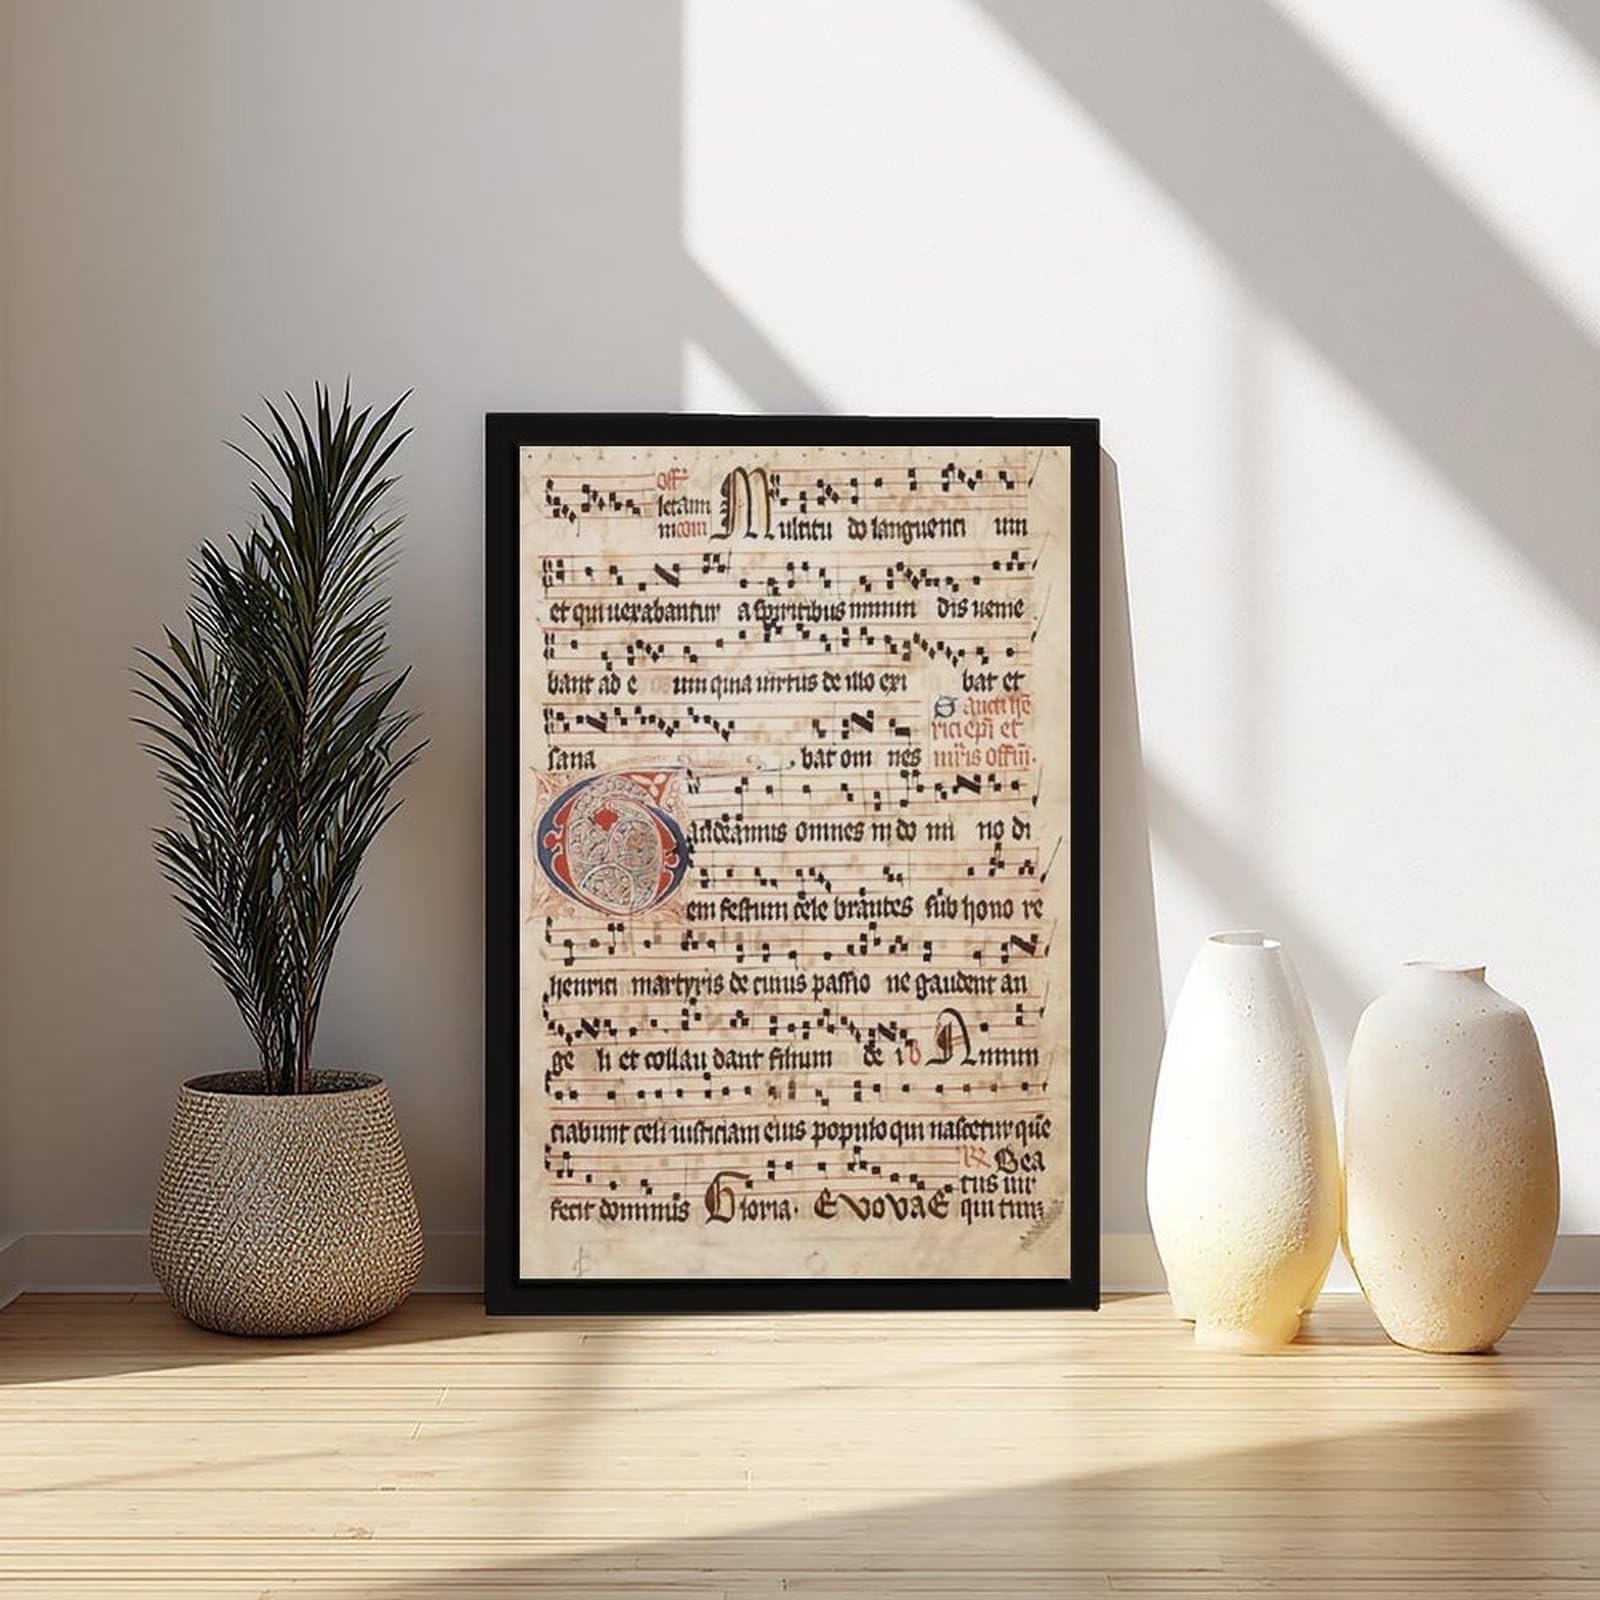 off
letam
m com Multitu do languenti um
et qui uexabantur a spiritibus inmun dis uenie
bant ad e um quia uirtus de illo exi bat et
Sancti he
rici epi et
sana bat om nes mris offm.
Gaudeamus omnes in do mi no di
em festum cele brantes sub hono re
henrici martyris de cuius passio ne gaudent an
ge li et collau dant filium de i Annun
ciabunt celi iusticiam eius populo qui nascetur que
Bea
tus uir
fecit dominus Gloria. EVOVAE qui tim